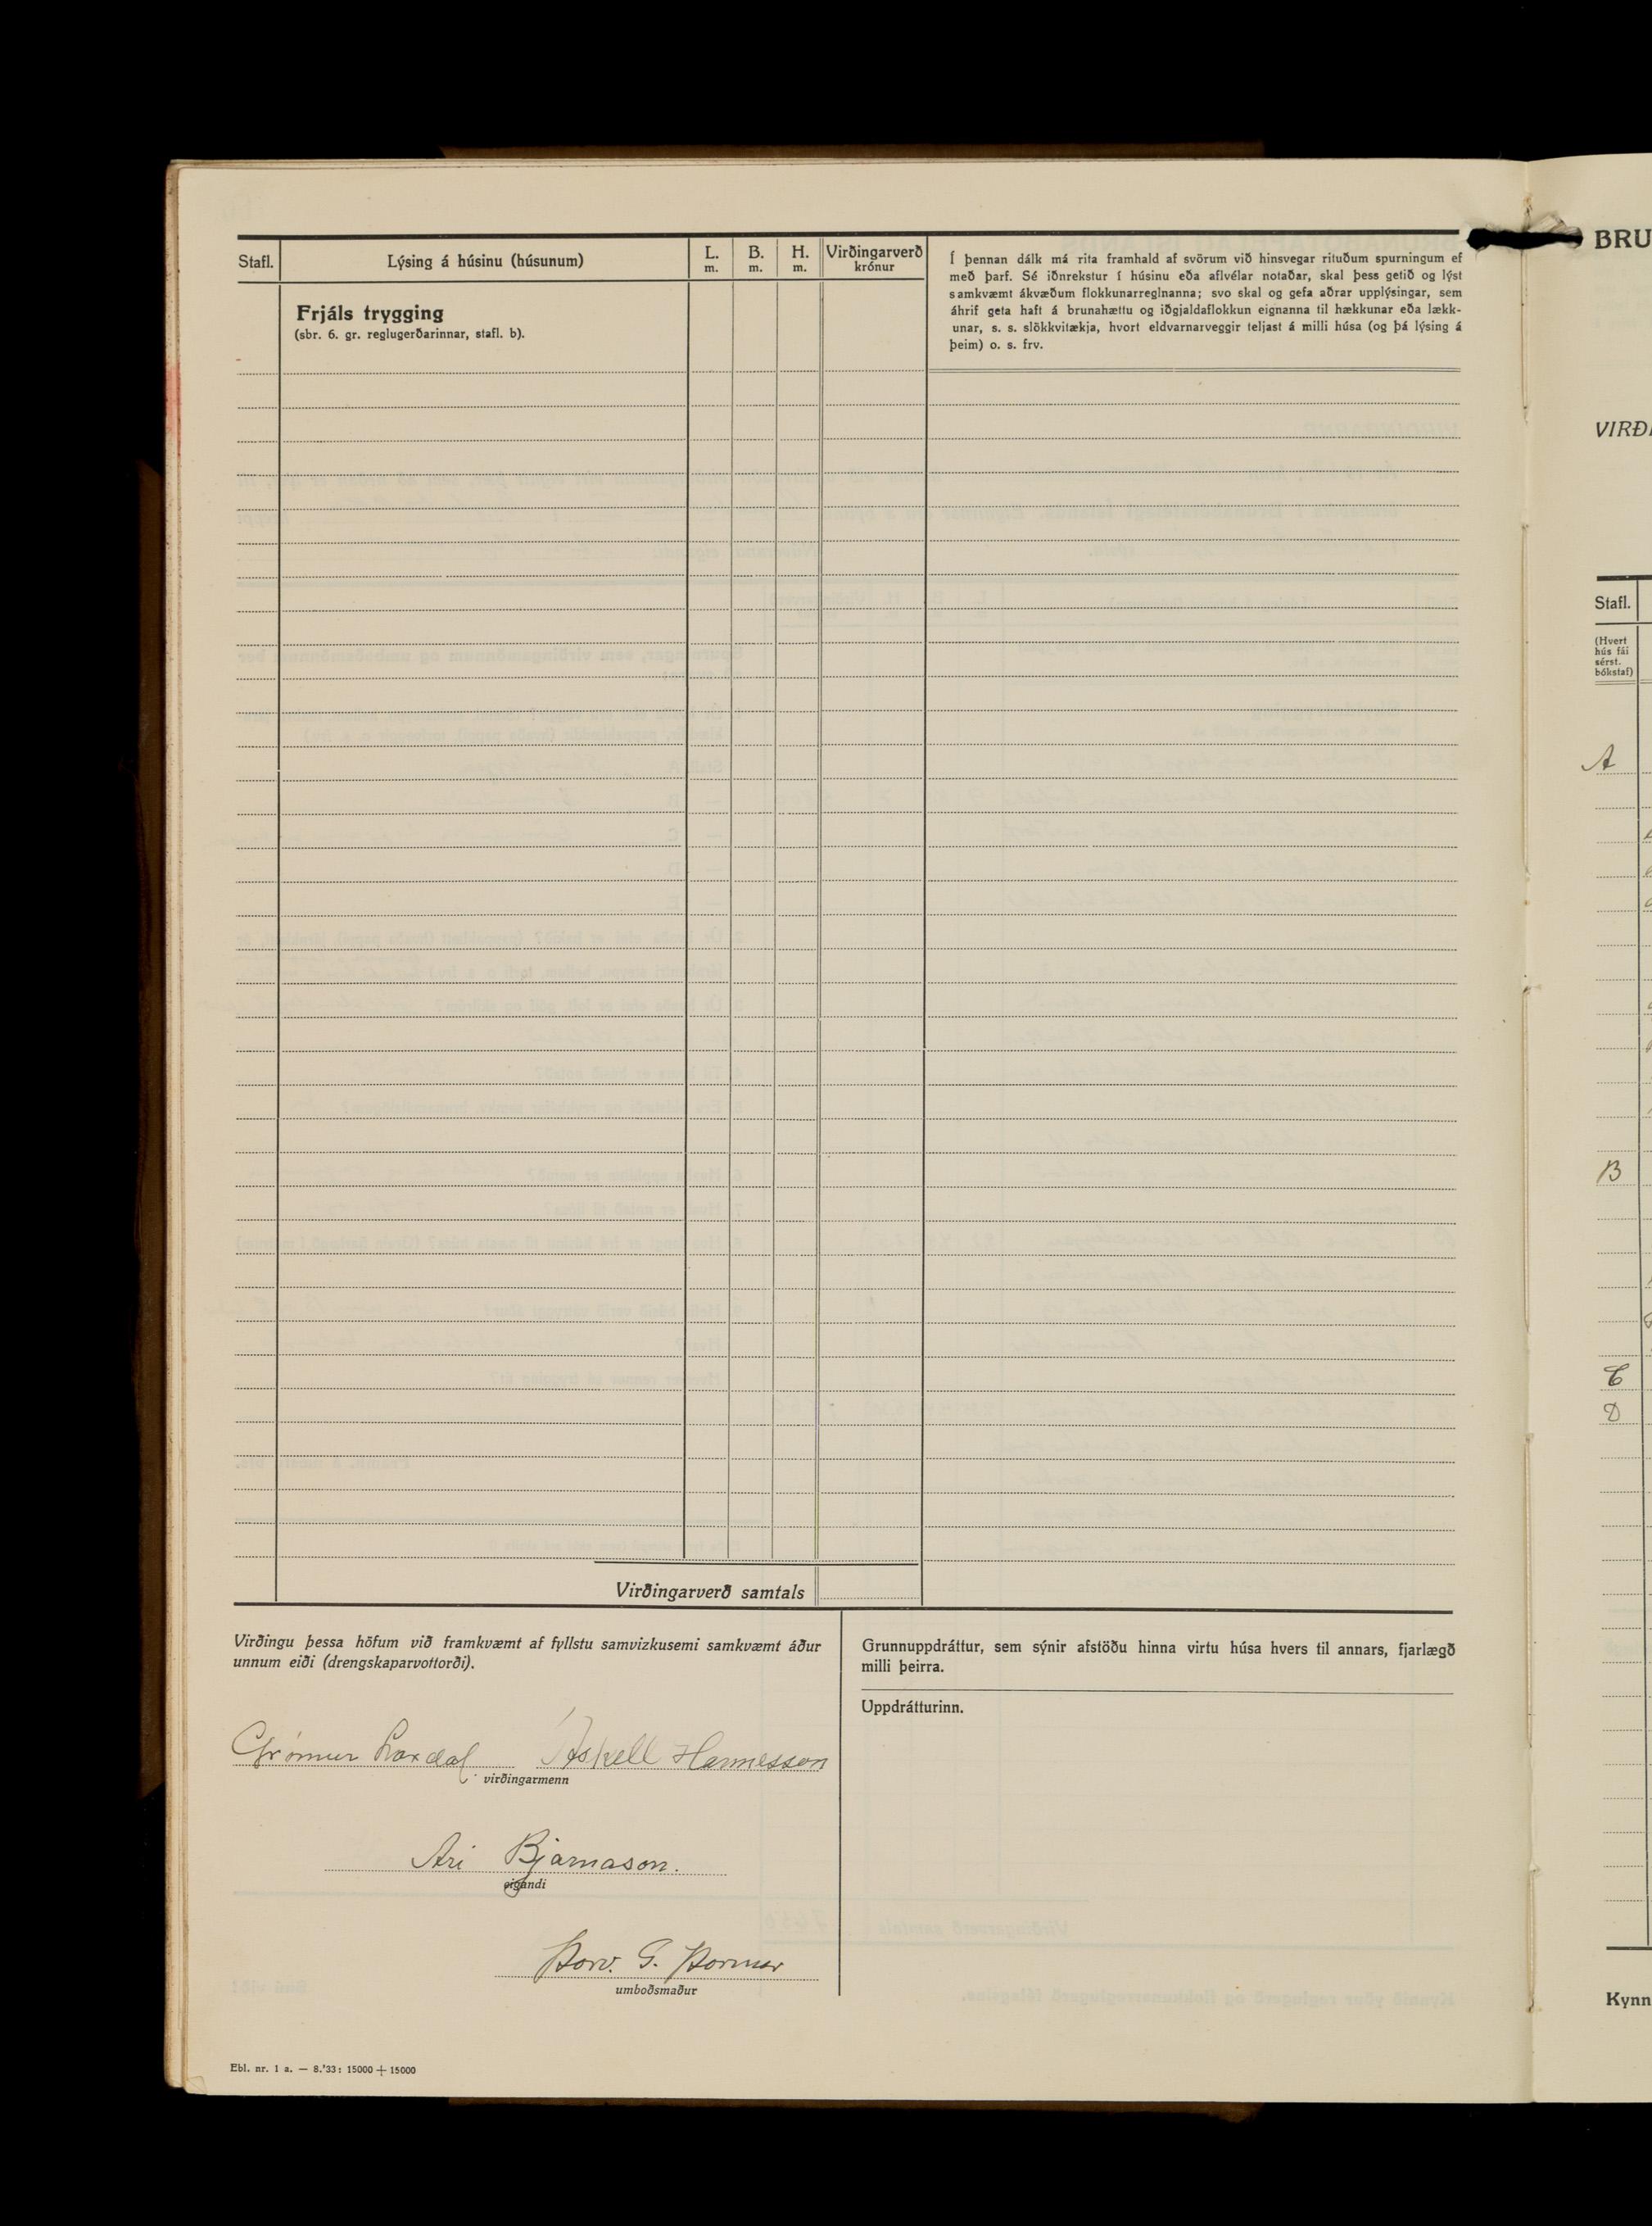 Stafl.
Lýsing á húsinu (húsunum)
L.
m.
B.
m.
H.
m.
Virðingarverð
krónur
Frjáls trygging
(sbr. 6. gr. reglugerðarinnar, stafl. b).
Í þennan dálk má rita framhald af svörum við hinsvegar rituðum spurningum ef
með þarf. Sé iðnrekstur í húsinu eða aflvélar notaðar, skal þess getið og lýst
samkvæmt ákvæðum flokkunarreglnanna; svo skal og gefa aðrar upplýsingar, sem
áhrif geta haft á brunahættu og iðgjaldaflokkun eignanna til hækkunar eða lækk-
unar, s. s. slökkvitækja, hvort eldvarnarveggir teljast á milli húsa (og þá lýsing á
þeim) o. s. frv.
Virðingarverð samtals
Virðingu þessa höfum við framkvæmt af fyllstu samvizkusemi samkvæmt áður
unnum eiði (drengskaparvottorði).
Grímur Laxdal Áskell Hannesson
virðingarmenn
Ari Bjarnason.
eigandi
Þorv. G. Þormar
umboðsmaður
Grunnuppdráttur, sem sýnir afstöðu hinna virtu húsa hvers til annars, fjarlægð
milli þeirra.
Uppdrátturinn.
Ebl. nr. 1 a. — 8.'33: 15000 + 15000
BRU
VIRÐI
Stafl.
(Hvert
hús fái
sérst.
bókstaf)
A
B
C
D
Kynn